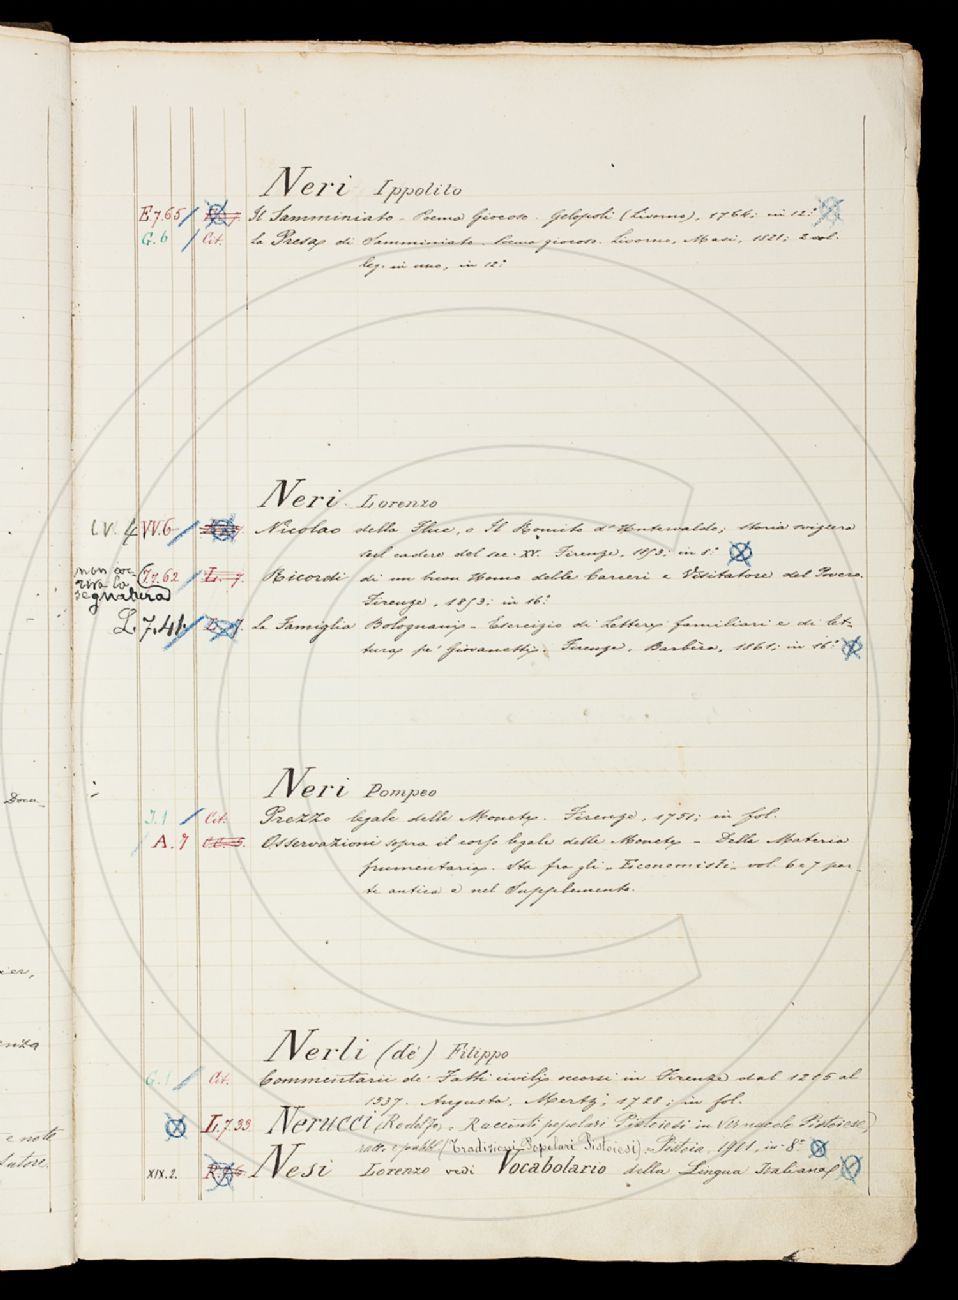 Neri Ippolito
E 7.65 Il Samminiato - Poema Giocoso. Gelopoli (Livorno), 1764; in 12.°
G. 6 Cit. La Presa di Samminiato. Poema giocoso. Livorno, Masi, 1821; 2 vol.
leg. in uno, in 12.°
Neri Lorenzo
LV. 4 VV.6 Nicolao della Flue, o Il Romito d'Unterwaldo; storia svizzera
sul cadere del sec. XV. Firenze, in 8.°
non cor-
riva la
segnatura
77.62 L. 7. Ricordi di un buon Uomo delle Carceri e Visitatore del Povero.
Firenze, 1853; in 16.°
L. 7.41. L. 7. La Famiglia Bolognani - Esercizio di Lettere familiari e di let-
tura pe' Giovanetti. Firenze, Barbèra, 1861; in 16.°
Neri Pompeo
J.1 Cit. Prezzo legale delle Monete. Firenze, 1751; in fol.
A. 7 Osservazioni sopra il corso legale delle Monete - Della Materia
frumentaria. Sta fra gli "Economisti" vol. 6 e 7 par-
te antica e nel Supplemento.
Nerli (de') Filippo
G.1 Cit. Commentarii de' Fatti civili occorsi in Firenze dal 1215 al
1537. Augusta, Mertz, 1728; in fol.
L.7.33 Nerucci (Rodolfo), Racconti popolari Pistoiesi in Vernacolo Pistoiese,
(Tradizioni Popolari Pistoiesi). Pistoia, 1901, in-8.°
XIX.2. Nesi Lorenzo vedi Vocabolario della Lingua Italiana
Docu-
ier,
enza
e note